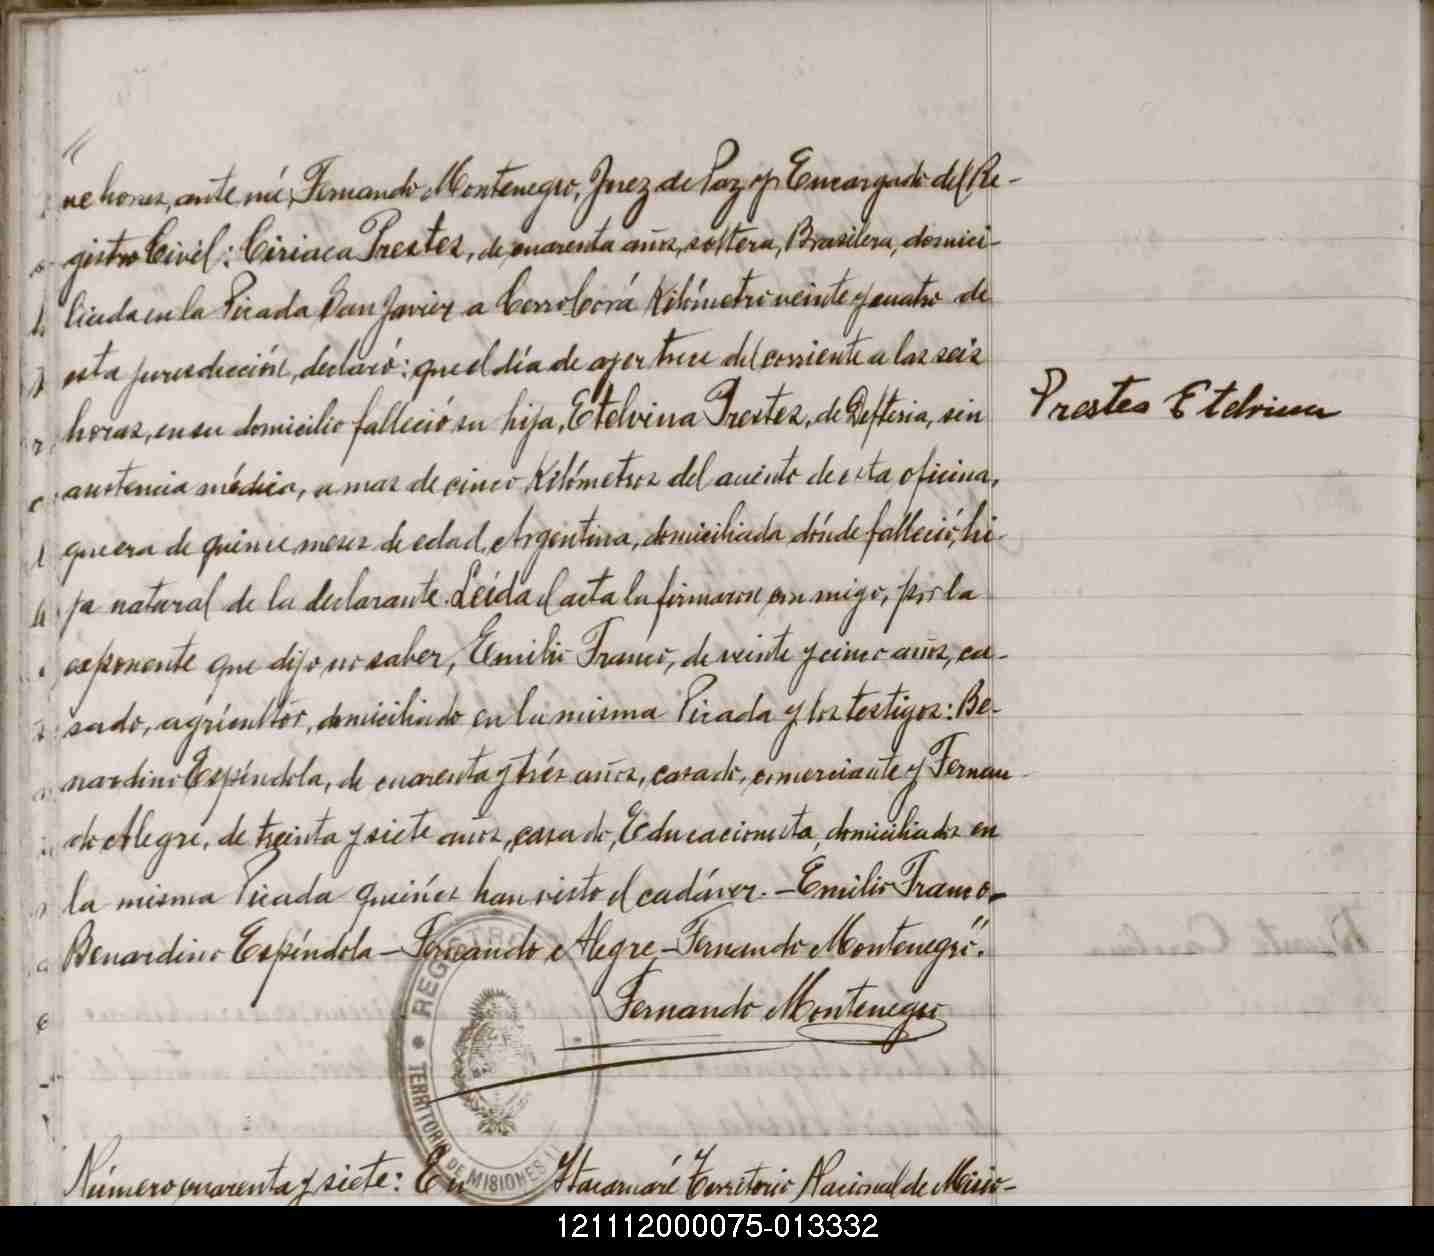 ve horas, ante mí, Fernando Montenegro, Juez de Paz y Encargado del Re-
gistro Civil: Ciriaca Prestes, de cuarenta años, soltera, Brasilera, domici-
liada en la Picada San Javier a Cerro Corá Kilómetro veinte y cuatro de
esta jurisdicción, declaró: que el día de ayer trece del corriente a las seis
horas, en su domicilio falleció su hija, Etelvina Prestes, de Difteria, sin
Prestes Etelvina
asistencia médica, a mas de cinco Kilómetros del asiento de esta oficina,
que era de quince meses de edad, Argentina, domiciliada dónde falleció, hi-
ja natural de la declarante. Leída el acta la firmaron con migo, por la
exponente que dijo no saber, Emilio Franco, de veinte y cinco años, ca-
sado, agricultor, domiciliado en la misma Picada y los testigos: Be-
nardino Espíndola, de cuarenta y trés años, casado, comerciante y Fernan-
do Alegre, de treinta y siete años, casado, Educacionista, domiciliados en
la misma Picada quiénes han visto el cadáver. - Emilio Franco -
Benardino Espíndola - Fernando Alegre - Fernando Montenegro".
Fernando Montenegro
REGISTRO
TERRITORIO DE MISIONES
Número cuarenta y siete: En Itacaruaré Territorio Nacional de Misio-
121112000075-013332